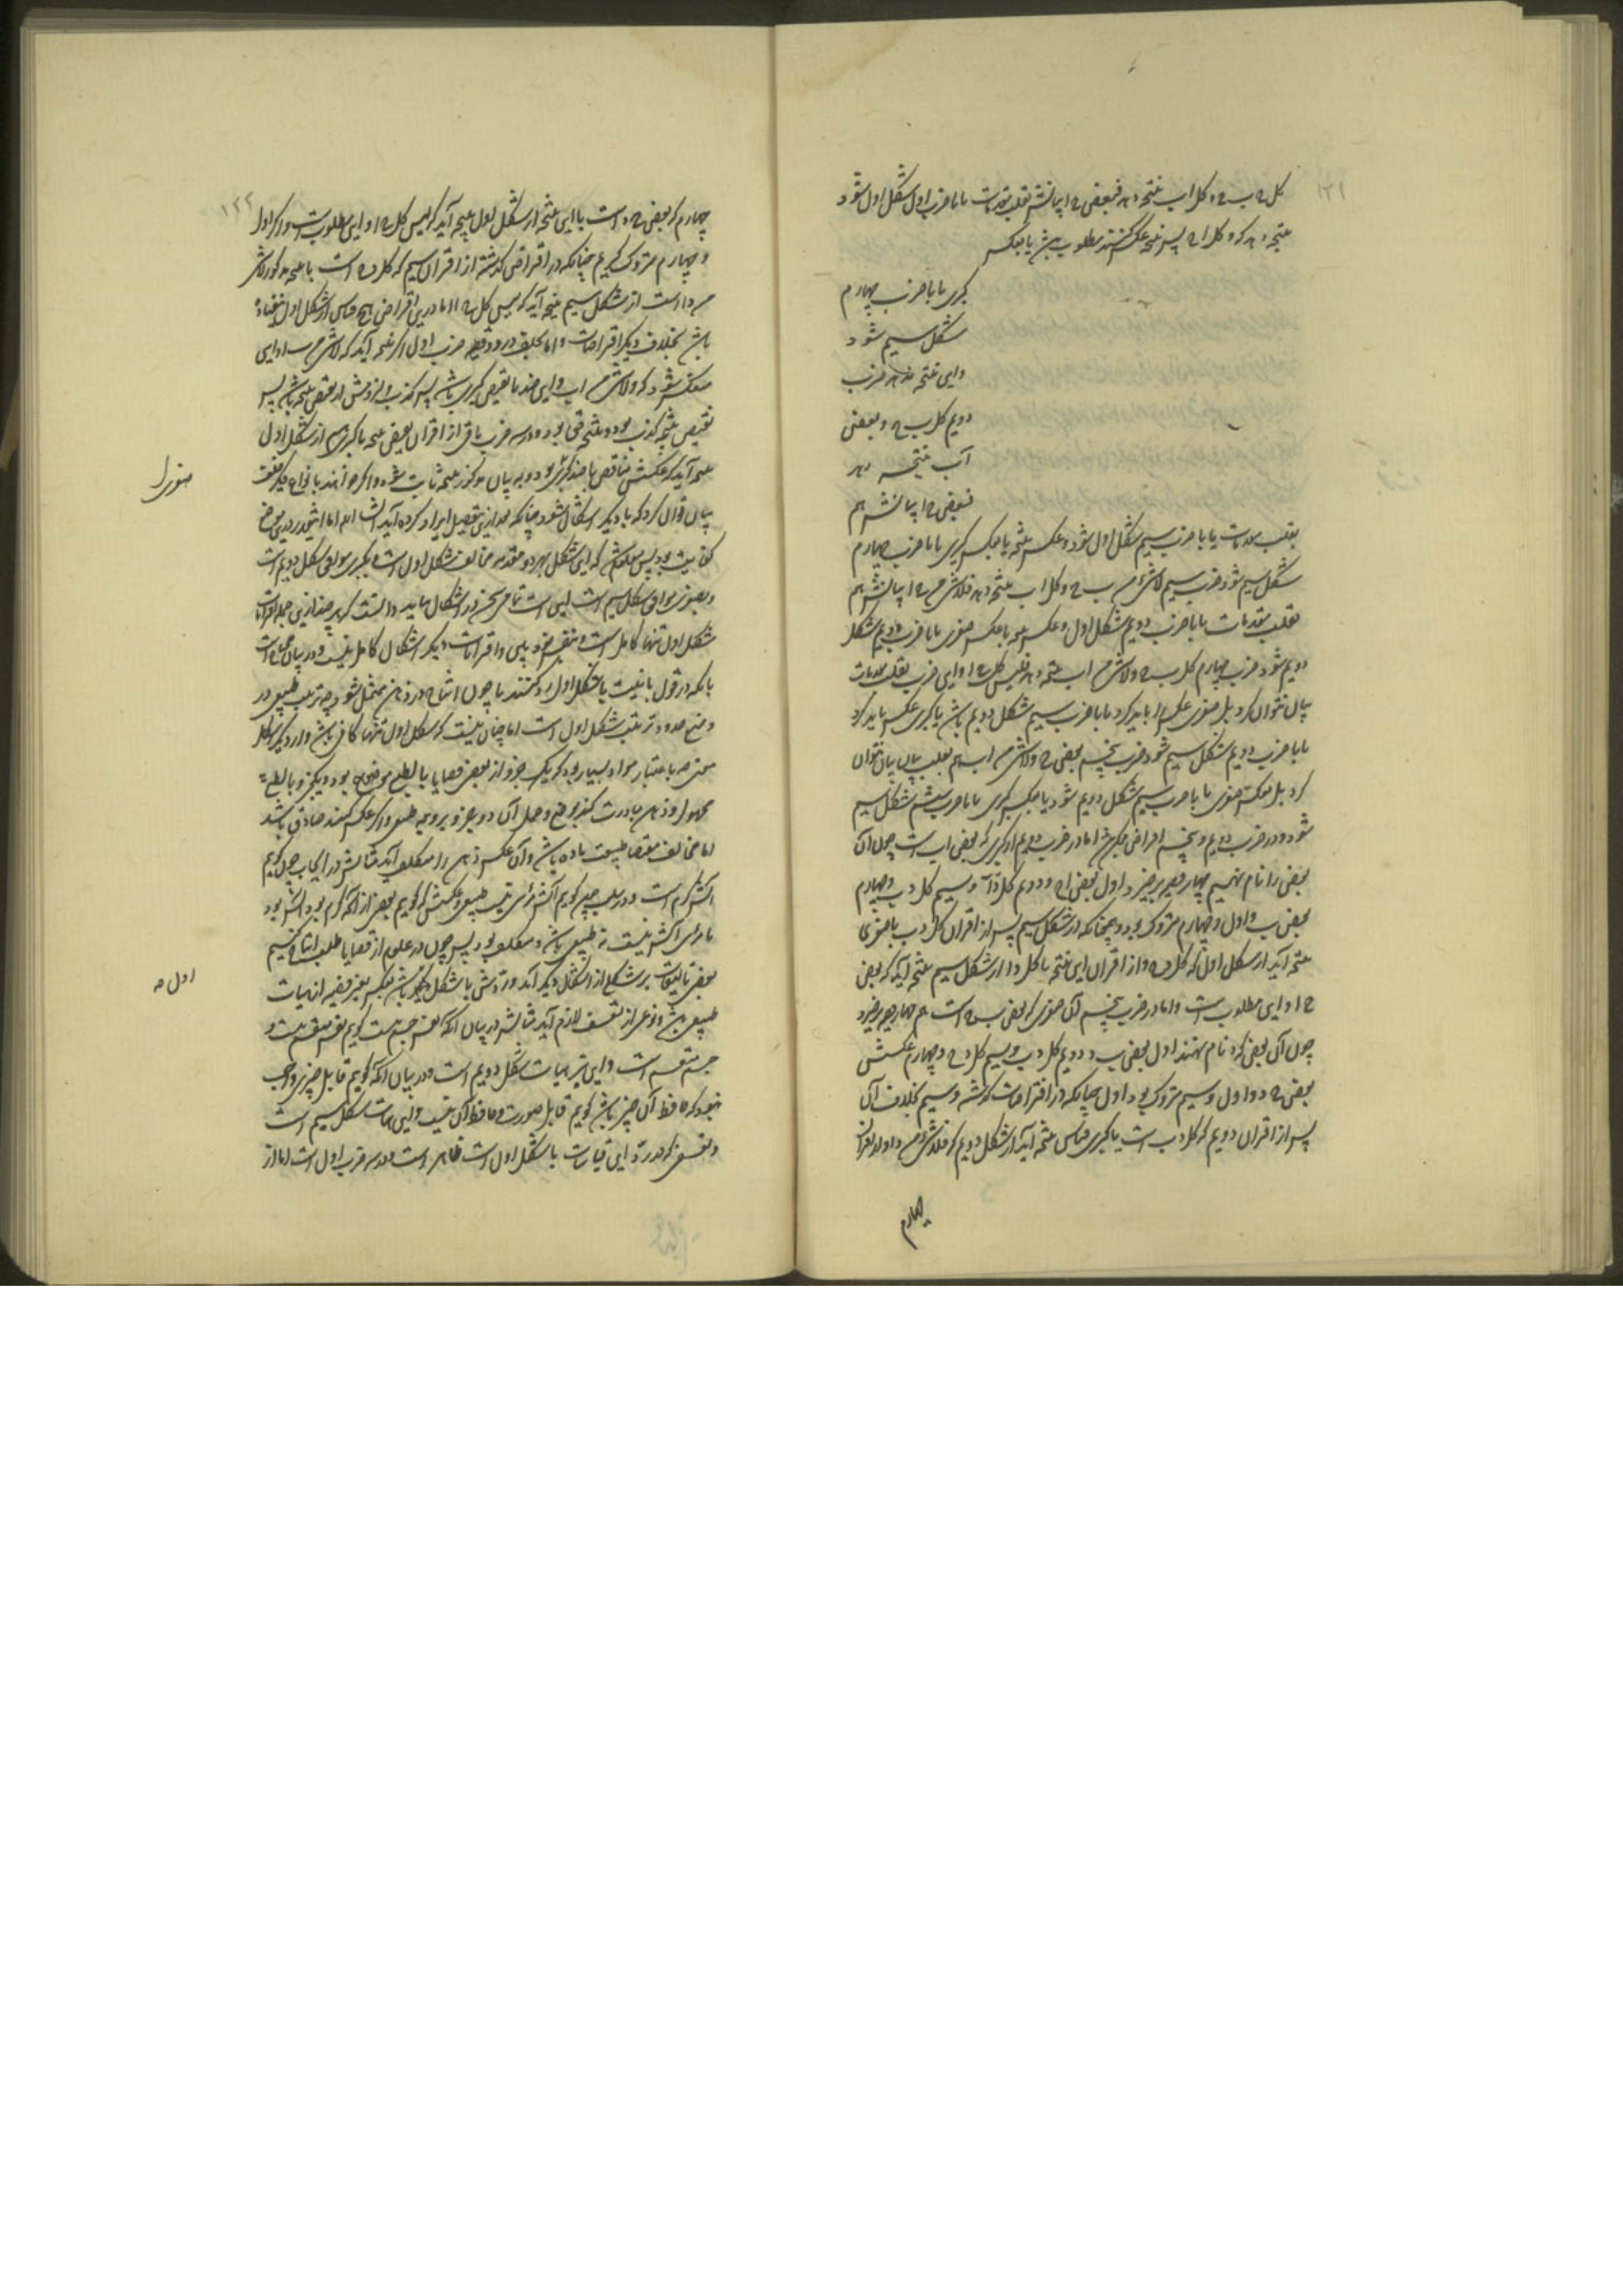 ۱۲۱
کل ج ب و کل ا ب نتیجه دهد فبعض ج ا بیانش بقلب مقدمات تا با ضرب اول شکل اول شود
نتیجه دهد که و کل ا ج پس نتیجه عکس کنند مطلوب باشد یا بعکس
کبری تا با ضرب چهارم
شکل سیم شود
و این نتیجه دهد ضرب
دویم کل ب ج و بعض
آ ب نتیجه دهد
فبعض ج ا بیانش هم
بقلب مقدمات تا با ضرب سیم شکل اول شود و عکس نتیجه یا بعکس کبری تا با ضرب چهارم
شکل سیم شود ضرب سیم لاشیء من ب ج و کل ا ب نتیجه دهد فلاشیء من ج ا بیانش هم
بقلب مقدمات تا با ضرب دویم شکل اول و عکس نتیجه یا بعکس صغری تا با ضرب دویم شکل
دویم شود ضرب چهارم کل ب ج و لاشیء من ا ب نتیجه دهد فلیس کل ج ا و این ضرب بقلب مقدمات
بیان نتوان کرد بل صغری عکس باید کرد تا با ضرب سیم شکل دویم باشد یا کبری عکس باید کرد
تا با ضرب دویم شکل سیم شود ضرب پنجم بعض ب ج و لاشیء من ا ب هم بقلب بیان نتوان
کرد بل بعکس صغری تا با ضرب سیم شکل دویم شود یا بعکس کبری تا با ضرب ششم شکل سیم
شود و در ضرب دویم و پنجم افتراض ممکن باشد اما در ضرب دویم از کبری که بعض ا ب است چون آن
بعض را د نام نهیم چهار قضیه برخیزد اول بعض ا د و دویم کل د ا و سیم کل د ب و چهارم
بعض ب د و اول و چهارم متروک بود و همچنانکه در شکل سیم پس از اقتران کل د ب با صغری
نتیجه آید از شکل اول که کل د ج و از اقتران این نتیجه با کل د ا از شکل سیم نتیجه آید که بعض
ج ا و این مطلوبست و اما در ضرب پنجم آن صغری که بعض ب ج است هم چهار قضیه برخیزد
چون آن بعض که د نام نهند اول بعض ب د و دویم کل د ب و سیم کل د ج و چهارم عکسش
بعض ج د و اول و سیم متروک بود اول چنانکه در افتراضات گذشته و سیم بخلاف آن
پس از اقتران دویم که کل د ب است با کبری قیاس نتیجه آید از شکل دویم که فلاشیء من د ا و از اقتران
چهارم
۱۲۲
چهارم که بعض ج د است با این نتیجه از شکل اول نتیجه آید که لیس کل ج ا و این مطلوبست و اگر اول
و چهارم متروک کنیم چنانکه در افتراض گذشته از اقتران سیم که کل د ج است با نتیجه مذکور لاشیء
من د ا است از شکل سیم نتیجه آید که لیس کل ج ا اما درین افتراض هیچ قیاس از شکل اول نیفتاده
باشد بخلاف دیگر افتراضات و اما بخلف در دو قضیه ضرب اول اگر نتیجه آید که لاشیء من ج ا و این
منعکس شود که و لاشیء من ا ب و این ضد یا نقیض کبری باشد پس کذب لازمش از نقیض نتیجه باشد پس
نقیض نتیجه کذب بود و نتیجه حق بود و در سه ضرب باقی از اقتران نقیض نتیجه با کبری هم از شکل اول
نتیجه آید که عکسش مناقض یا ضد کبری بود و به بیان مذکور نتیجه ثابت شود و اگر خواهند بانواع دیگر خلف
صغری را
بیان توان کرد که با دیگر اشکال شود چنانکه بعد ازین بتفصیل ایراد کرده آید انشاء الله اما اینقدر درین موضع
کفایت بود پس معلوم شد که این شکل بهر دو مقدمه مخالف شکل اول است و بکبری موافق شکل دویم است
و بصغری موافق شکل سیم است این است تمامی سخن در اشکال و باید دانست که هر چند ازین جمله اقترانات
شکل اول تنها کامل است و بنفس خود بین و اقترانات دیگر اشکال کامل نیست و در بیان محتاج است
بآنکه در قول یا نیت با شکل اول رد کنند یا چون انتاج در ذهن متمثل شود چه ترتیب طبیعی در
وضع حدود ترتیب شکل اول است اما چنان نیست که شکل اول تنها کافی باشد و از دیگر اشکال
مستغنی چه باعتبار مواد بسیار بود که یک جزو از بعض قضایا بالطبع موضوع بود و دیگر جزو بالطبع
محمول و ذهن مبادرت کند بوضع و حمل آن دو جزو بر وجه طبیعی و اگر عکس کنند صادق باشد
اما مخالف مقتضای طبیعت ماده باشد و آن عکس ذهن را متکلف آید مثالش در ایجاب چون گوییم
آتش گرم است و در سلب چون گوییم آتش مرئی نیست طبیعی و عکسش که گوییم بعضی از آنکه گرم بود آتش بود
یا مرئی آتش نیست نه طبیعی باشد و متکلف بود پس چون در علوم از قضایا طلب انتاج کنیم
اول ص
بعض تالیفات بر شکلی از اشکال دیگر آید و ردش با شکل دیگر باشد بعکس بعض قضیه از هیات
طبیعی باشد و نوعی از تعسف لازم آید مثالش در بیان آنکه نفس جسم نیست گوییم نفس منقسم نیست و
جسم منقسم است و این تر هیات شکل دویم است و در بیان آنکه گوییم قابل چیزی واجب
نبود که حافظ آن چیز باشد گوییم آب قابل صورت و حافظ آن نیست و این هیات شکل سیم است
و تعسفی که در رد این قیاسات با شکل اول است ظاهر است و در سه ضرب اول است اما از